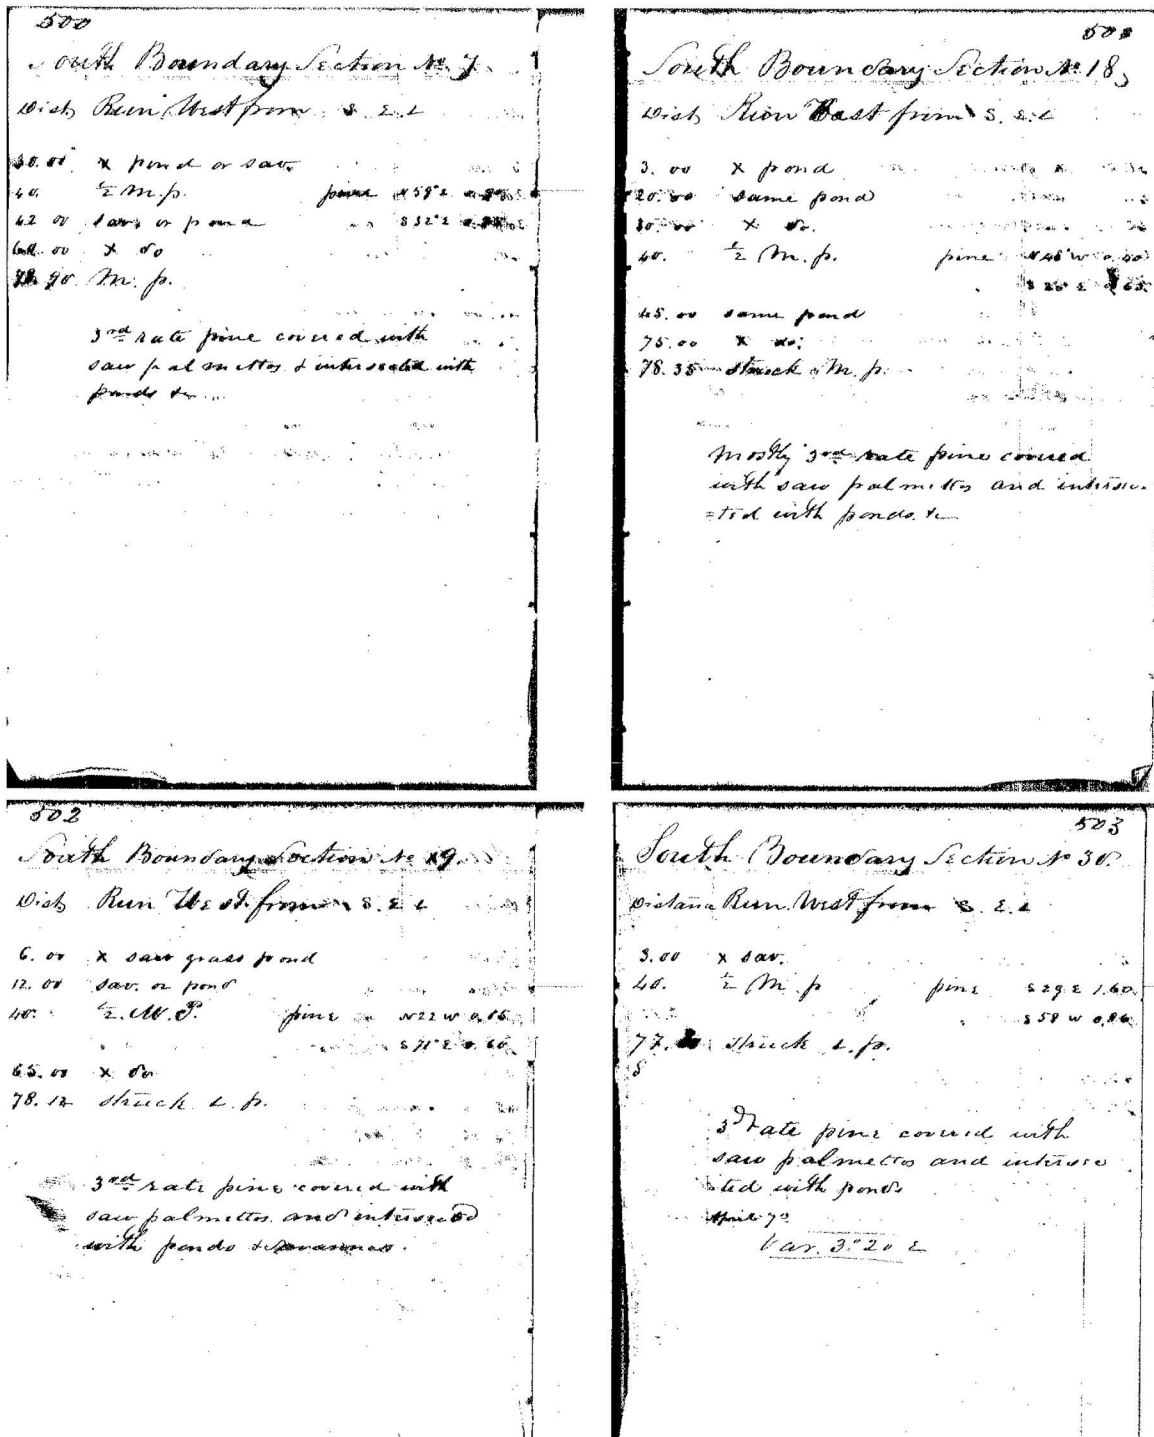 500
South Boundary Section No 7
Dist Run West from S. E. C
30.00 x pond or sav.
40. ½ M. p. pine N 59° E
62 00 sav. or pond S 32° E
68. 00 x do
78. 90 M. p.
3rd rate pine covered with
saw palmettos & intersected with
ponds &c
501
South Boundary Section No 18
Dist Run East from S. E. C
3. 00 x pond
20. 00 same pond
30. 00 x do.
40. ½ M. p. pine N 45 W
45. 00 same pond
75. 00 x do.
78. 35 struck M. p.
Mostly 3rd rate pine covered
with saw palmettos and intersec-
=ted with ponds. &c
502
South Boundary Section No 19
Dist Run West from S. E. C
6. 00 x saw grass pond
12. 00 sav. or pond
40. ½ M. P. pine N 22 W
S 71° E 0. 60
65. 00 x do
78. 12 struck L. p.
3rd rate pine covered with
saw palmettos and intersected
with ponds & savannas.
503
South Boundary Section No 30.
Distance Run West from S. E. C
3. 00 x sav.
40. ½ M. p pine S 29 E 1.60.
S 58 W 0,86
77. struck L. p.
3d rate pine covered with
saw palmettos and intersec
ted with ponds
April 7th
Var. 3° 20 E